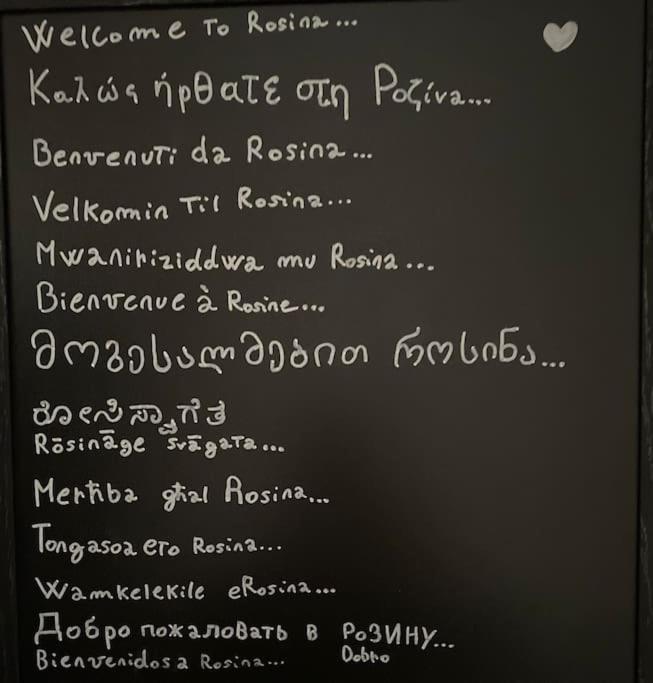 Welcome To Rosina...
Καλώς ήρθατε στη Ροζίνα...
Benvenuti da Rosina...
Velkomin Til Rosina...
Mwaniriziddwa mu Rosina...
Bienvenue à Rosine...
მოგესალმებით როსინა...
Rōsināge svāgata...
Merħba għal Rosina...
Tongasoa eto Rosina...
Wamkelekile eRosina...
Добро пожаловать в РОЗИНУ...
Bienvenidos a Rosina...
Dobro